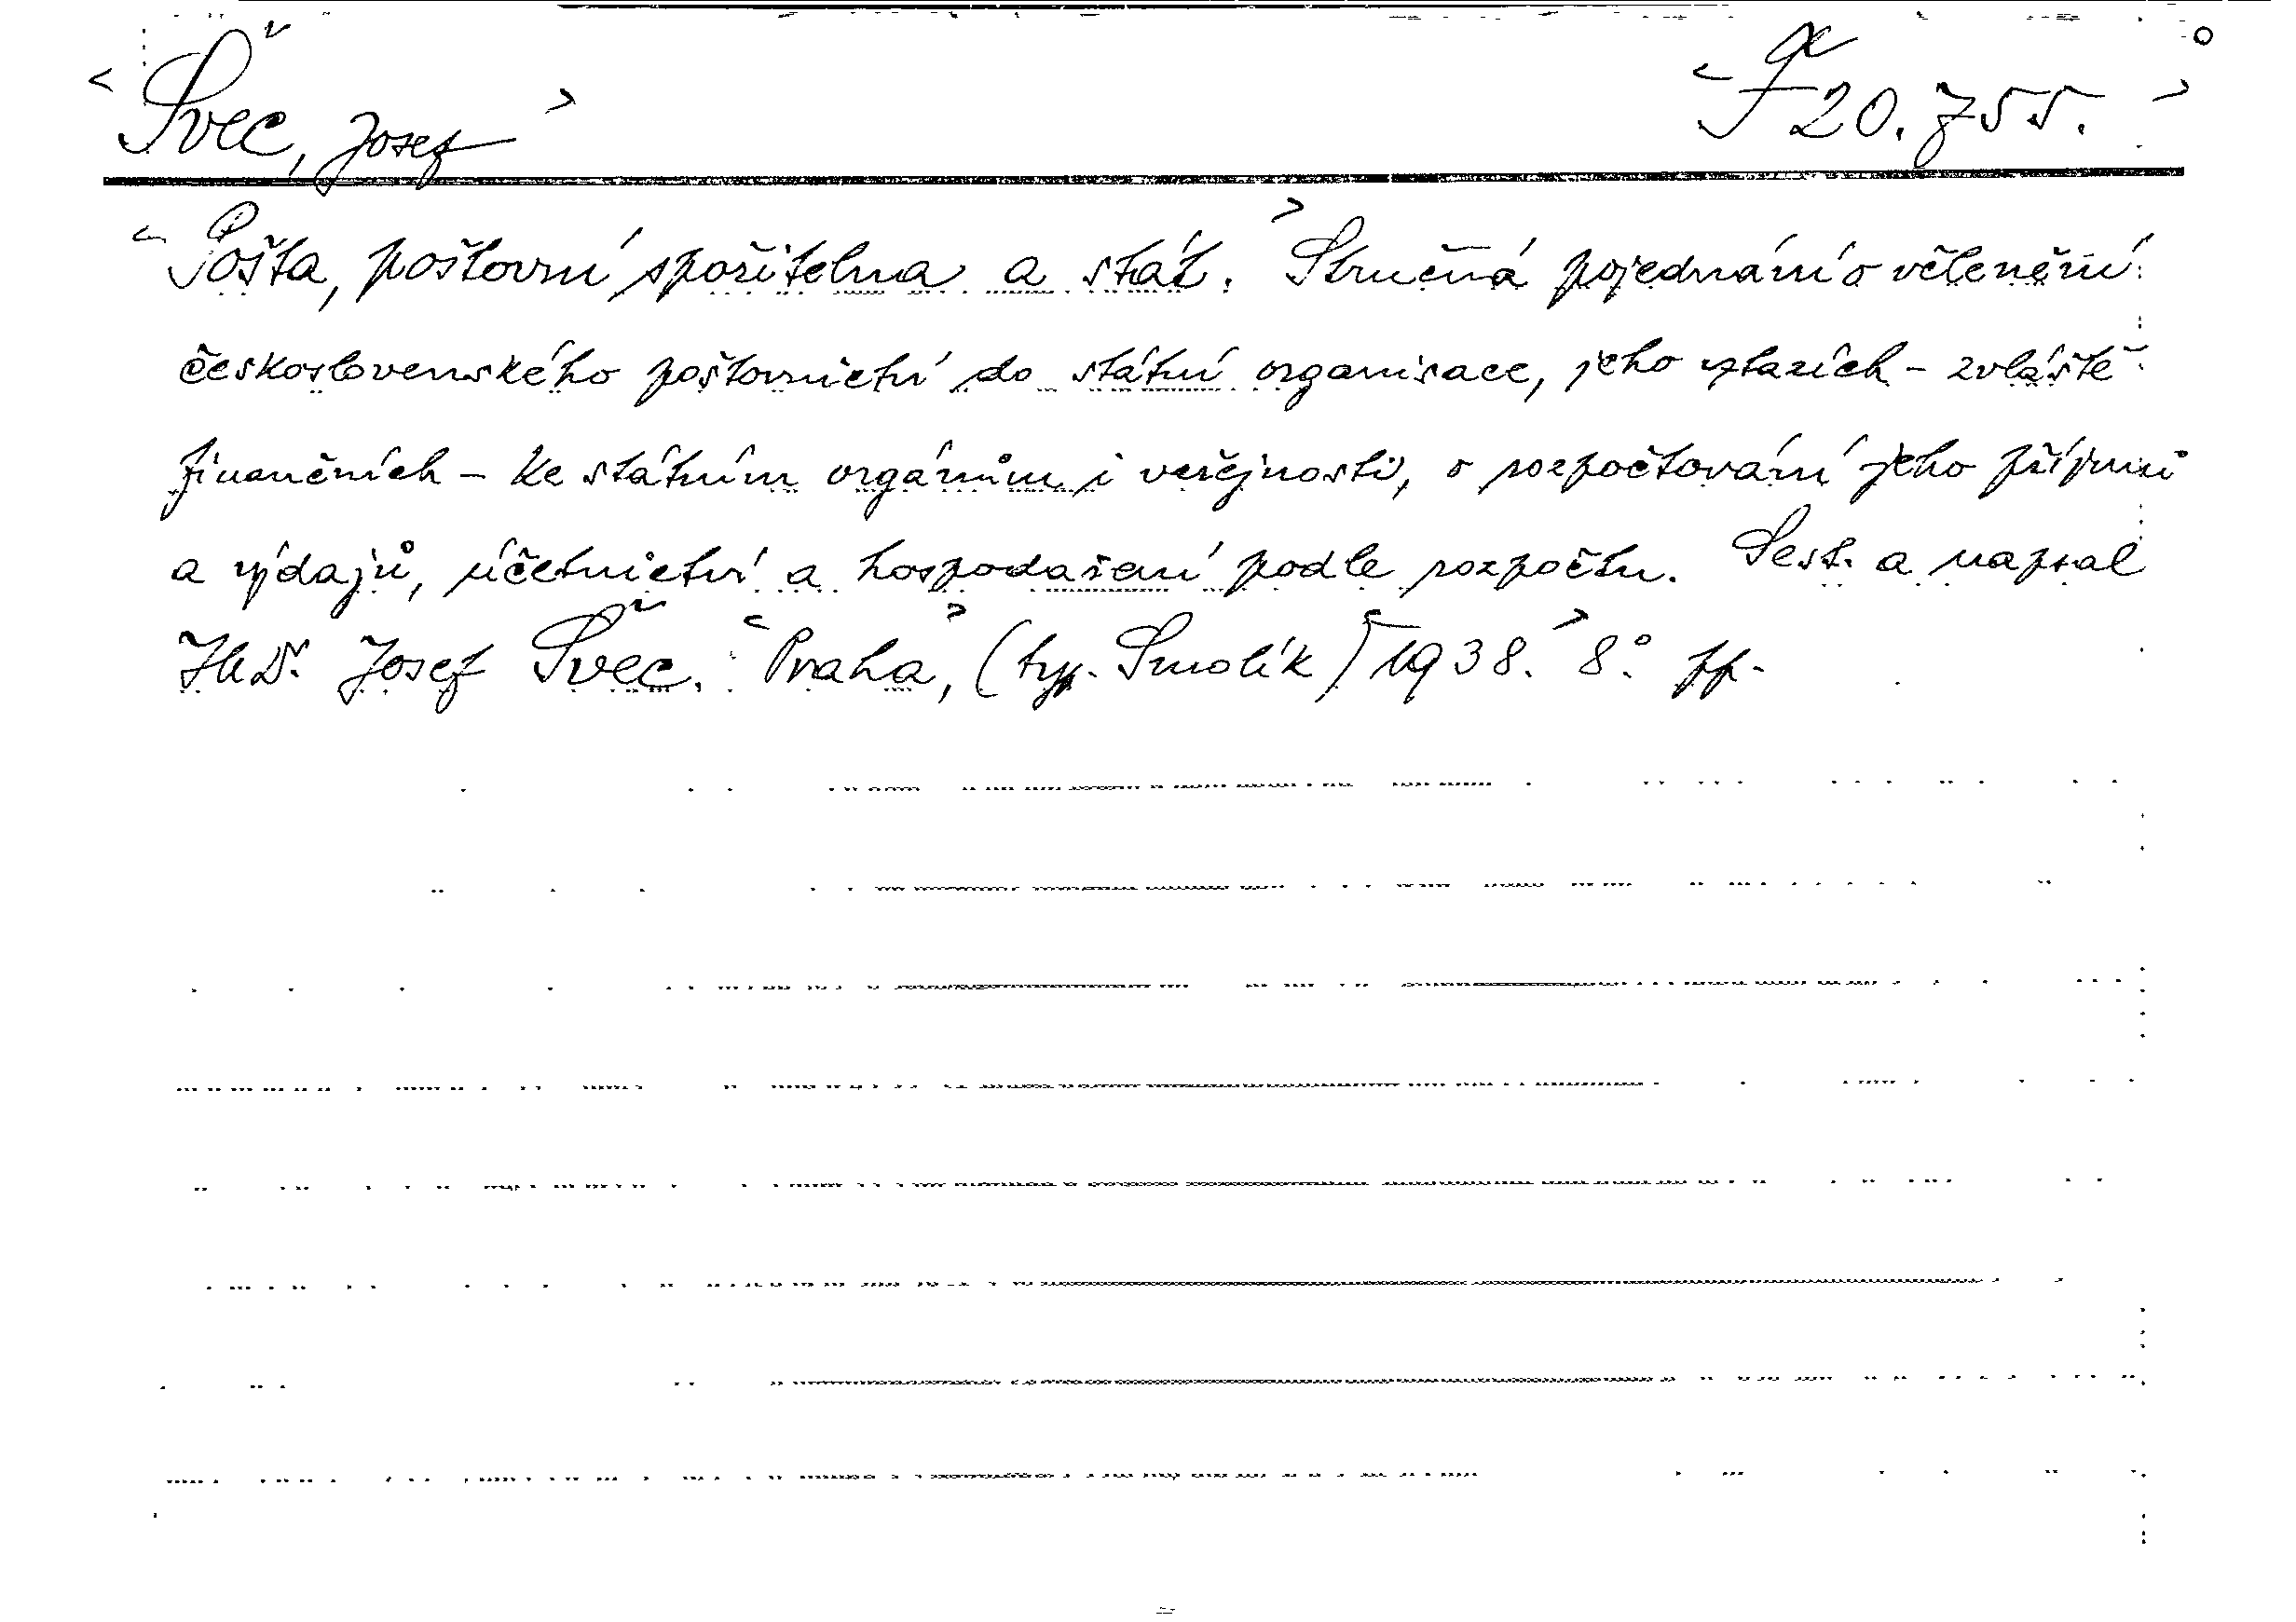 < Švec, Josef >
< F 20.755. >
< Pošta, poštovní spořitelna a stát. > Stručná pojednání o včlenění
československého poštovnictví do státní organisace, jeho vztazích - zvláště
finančních - ke státním orgánům i veřejnosti, o rozpočtování jeho příjmů
a výdajů, účetnictví a hospodaření podle rozpočtu. Sest. a napsal
JUDr. Josef Švec. < Praha, > (typ. Smolík) < 1938. > 8°.